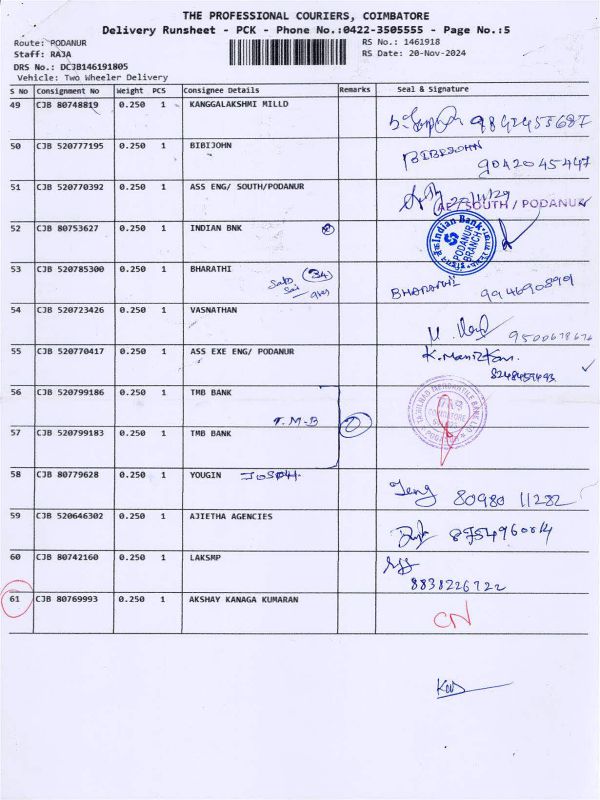 THE PROFESSIONAL COURIERS, COIMBATORE
Delivery Runsheet - PCK - Phone No.:0422-3505555 - Page No.:5
Route: PODANUR
RS No.: 1461918
Staff: RAJA
RS Date: 20-Nov-2024
DRS No.: DCJB146191805
Vehicle: Two Wheeler Delivery
S No Consignment No Weight PCS Consignee Details Remarks Seal & Signature
49 CJB 80748819 0.250 1 KANGGALAKSHMI MILLD
9842455687
50 CJB 520777195 0.250 1 BIBIJOHN BIBIJOHN
90420 45447
51 CJB 520770392 0.250 1 ASS ENG/ SOUTH/PODANUR
AE / SOUTH / PODANUR
52 CJB 80753627 0.250 1 INDIAN BNK
Indian Bank
PODANUR
BRANCH
53 CJB 520785300 0.250 1 BHARATHI 34
BHARATHI 994690899
54 CJB 520723426 0.250 1 VASNATHAN
9500678676
55 CJB 520770417 0.250 1 ASS EXE ENG/ PODANUR K. Manikan
56 CJB 520799186 0.250 1 TMB BANK
T.M-B
TAMILNAD MERCANTILE BANK LTD
57 CJB 520799183 0.250 1 TMB BANK 2
58 CJB 80779628 0.250 1 YOUGIN
80980 11282
59 CJB 520646302 0.250 1 AJIETHA AGENCIES
60 CJB 80742160 0.250 1 LAKSMP
8838226722
61 CJB 80769993 0.250 1 AKSHAY KANAGA KUMARAN
CN